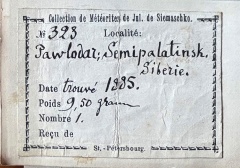 Collection de Météorites de Jul. de Siemaschko.
№ 323 Localité:
Pawlodar, Semipalatinsk.
Siberie.
Date trouvé 1885.
Poids 9,50 gram
Nombre 1.
Reçu de
St.-Pétersbourg.